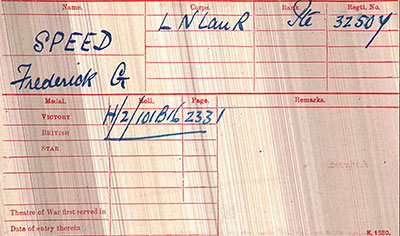 Name. Corps. Rank. Regtl. No.
SPEED L N Lan R Pte 32504
Frederick G
Medal. Roll. Page. Remarks.
VICTORY H/2/101B16 2331
BRITISH
STAR
Theatre of War first served in
Date of entry therein
K. 1380.